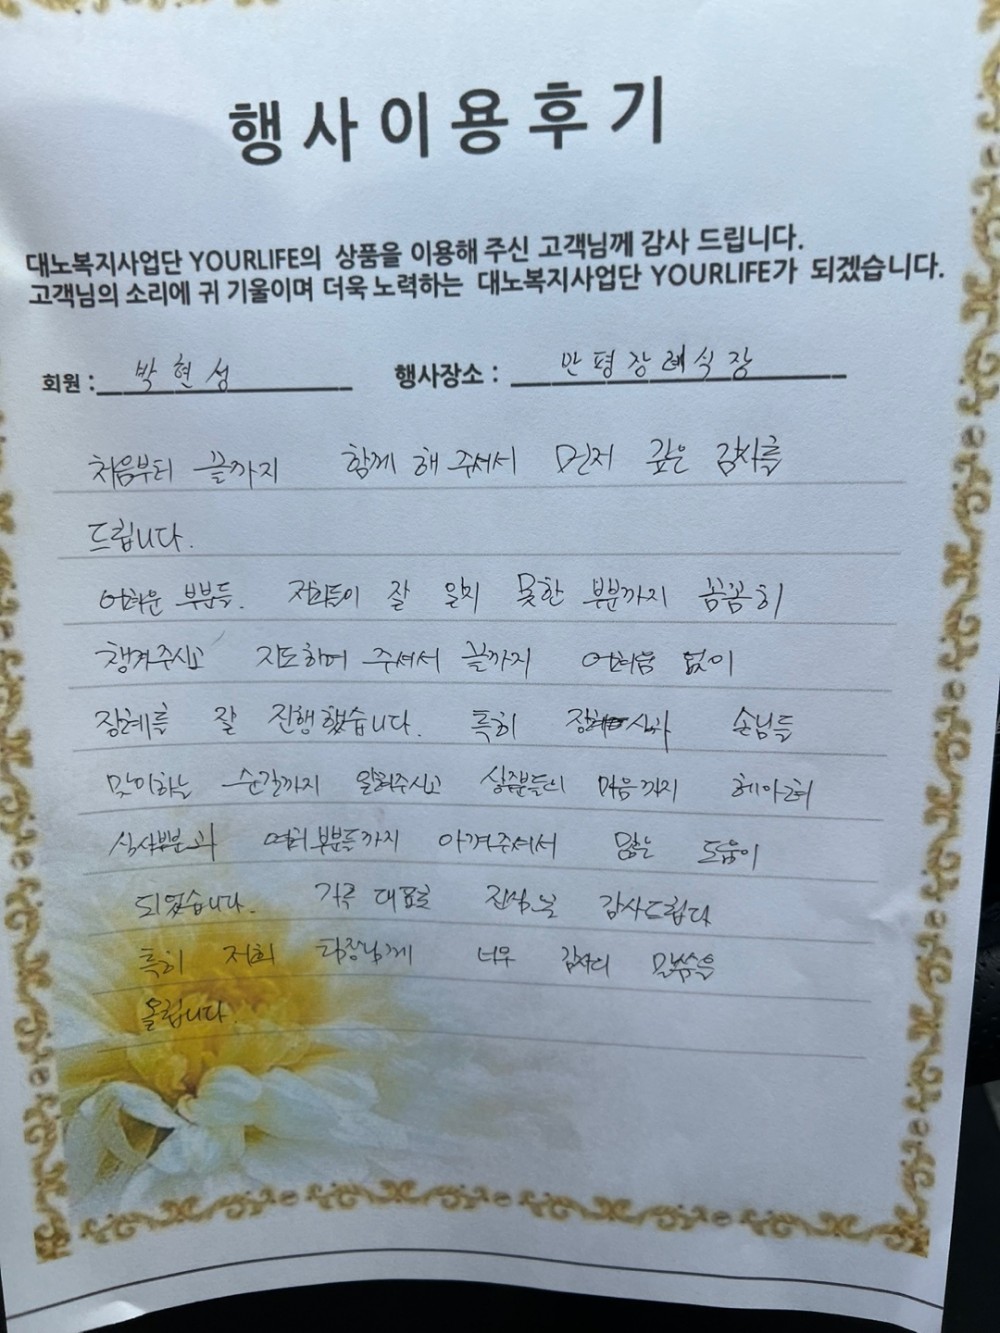 행사이용후기
대노복지사업단 YOURLIFE의 상품을 이용해 주신 고객님께 감사 드립니다.
고객님의 소리에 귀 기울이며 더욱 노력하는 대노복지사업단 YOURLIFE가 되겠습니다.
회원 : 박현성 행사장소 : 만평장례식장
처음부터 끝까지 함께 해 주셔서 먼저 깊은 감사를
드립니다.
어려운 부분들. 저희들이 잘 알지 못한 부분까지 꼼꼼히
챙겨주시고 지도하여 주셔서 끝까지 어려움 없이
장례를 잘 진행했습니다. 특히 손님들
맞이하는 순간까지 알려주시고 상주분들의 마음까지 헤아려
여러부분들까지 아껴주셔서 많은 도움이
되었습니다. 가족 대표로 진심으로 감사드립니다
특히 저희 팀장님께 너무 감사의 말씀을
올립니다.